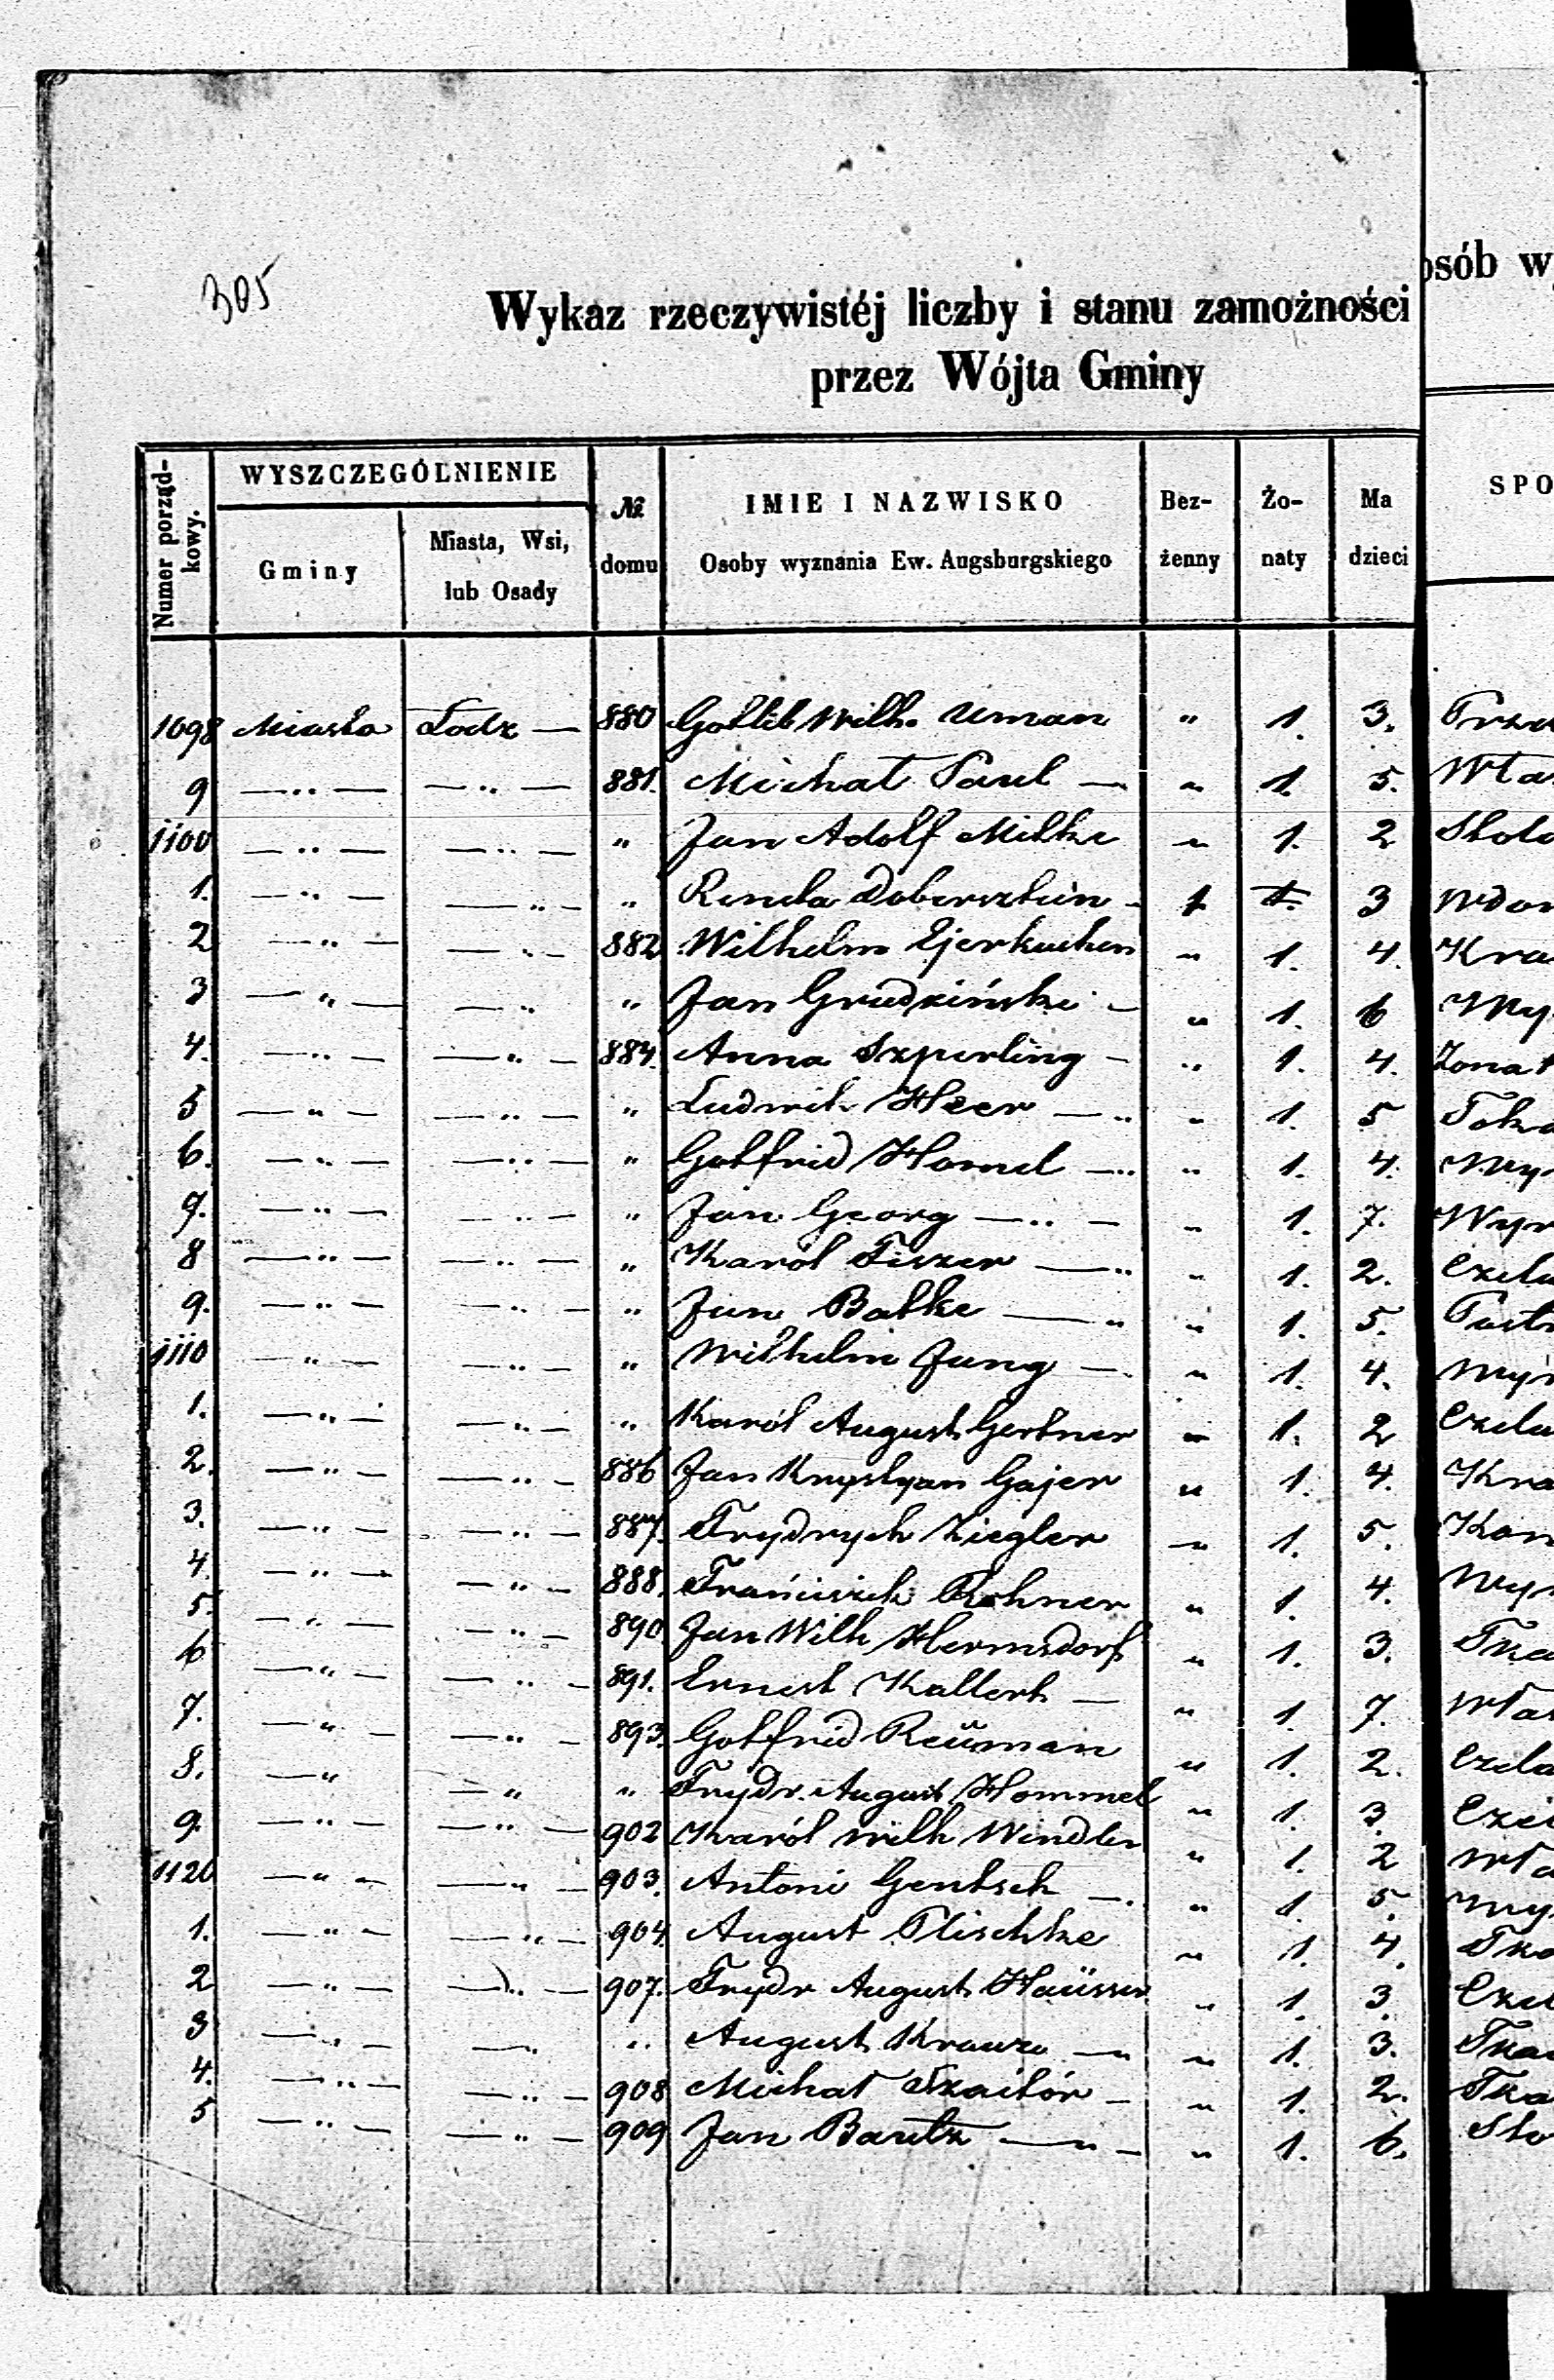 305
Wykaz rzeczywistéj liczby i stanu zamożności
przez Wójta Gminy
osób w
Numer porząd-
kowy.
WYSZCZEGÓLNIENIE
Gminy
Miasta, Wsi,
lub Osady
№
domu
IMIE I NAZWISKO
Osoby wyznania Ew. Augsburgskiego
Bez-
żenny
Żo-
naty
Ma
dzieci
SPO
1098 Miasta Łodz — 880 Gottlib Wilh. Uman " 1. 3.
9 — " — — " — 881. Michał Paul — " 1. 5. Wła
1100 — " — — " — " Jan Adolf Milke " 1. 2 Stola
1. — " — — " — " Renela Doberschtein - 1 1. 3 Wdow
2 — " — — " — 882 Wilhelm Ejerkuchen " 1. 4. Kra
3 — " — — " " Jan Grudziński — " 1. 6 Wy
4. — " — — " — 884. Anna Szperling — " 1. 4. Zonat
5 — " — — " — " Ludwik Heer — " " 1. 5 Toka
6. — " — — " — " Gottfrid Homel — " " 1. 4. Wy
7. — " — — " — " Jan Georg — " — " 1. 7. Wyr
8 — " — — " — " Karól Fiszer — " " 1. 2. Czela
9. — " — — " — " Jan Batke — " " 1. 5.
1110 — " — — " — " Wilhelm Jung — " 1. 4. Wyr
1. — " — — " — " Karól August Gertner " 1. 2 Czela
2. — " — — " — 886 Jan Krystyan Gajer " 1. 4. Kra
3. — " — — " — 887. Frydrych Ziegler " 1. 5.
4. — " — — " — 888. Franciszek Rohner " 1. 4. Wyr
5. — " — — " — 890 Jan Wilh Hermsdorf " 1. 3. Tka
6 — " — — " — 891. Ernest Kallert — " 1. 7. Wła
7. — " — — " — 893. Gottfrid Reüman " 1. 2. Czela
8. — " — " " Frydr. August Hommel " 1. 3.
9. — " — — " — 902 Karól Wilh Windler " 1. 2 Wła
1120 — " — — " — 903. Antoni Gentsch — " 1. 5. Wy
1. — " — — " — 904. August Plischke " 1. 4. Tka
2 — " — — " — 907. Frydr August Haüsser " 1. 3. Czel
3 — " — — " " August Krauze — " " 1. 3. Tka
4. — " — — " — 908 Michał Szaibór — " 1. 2. Tka
5 — " — — " — 909 Jan Bartz — " — " 1. 6. Sto